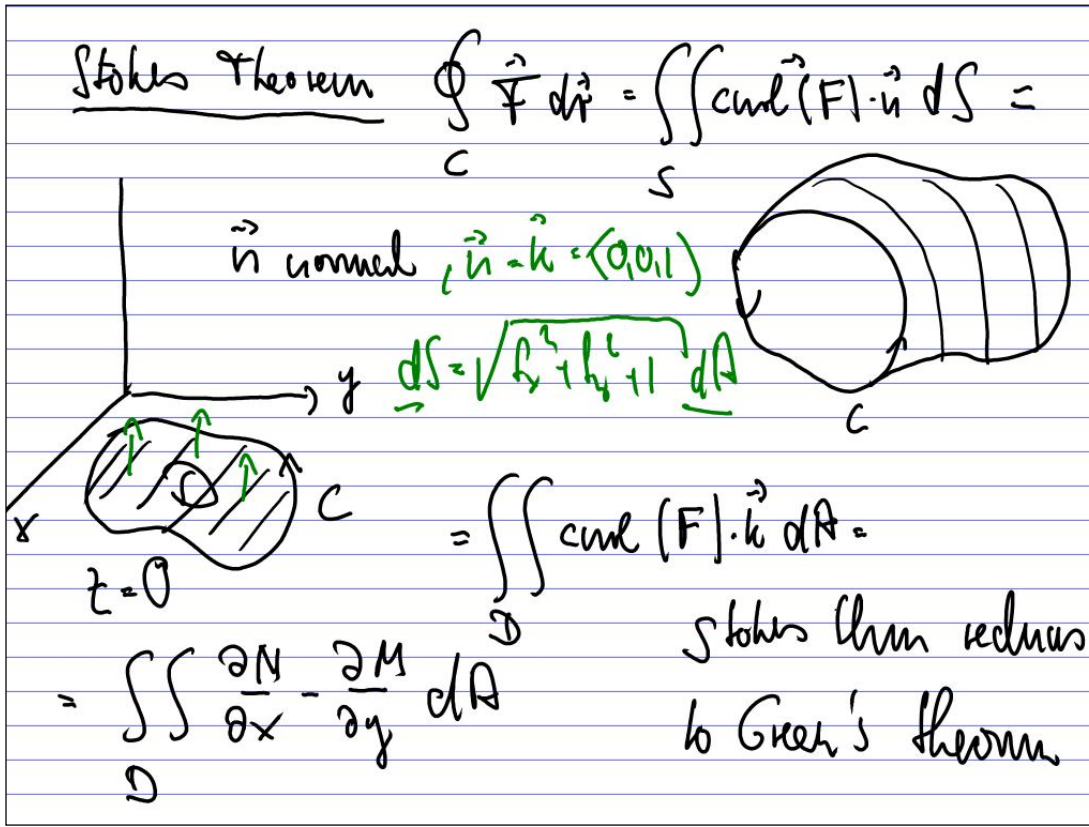 Stokes Theorem ∮_C F⃗ dr⃗ = ∬_S curl⃗(F)·n⃗ dS =
n⃗ normal, n⃗ = k⃗ = ⟨0,0,1⟩
dS = √(f_x² + f_y² + 1) dA
y
C
x
C
z=0
= ∬_D curl (F)·k⃗ dA =
= ∬_D ∂N/∂x - ∂M/∂y dA
Stokes thm reduces
to Green's theorem